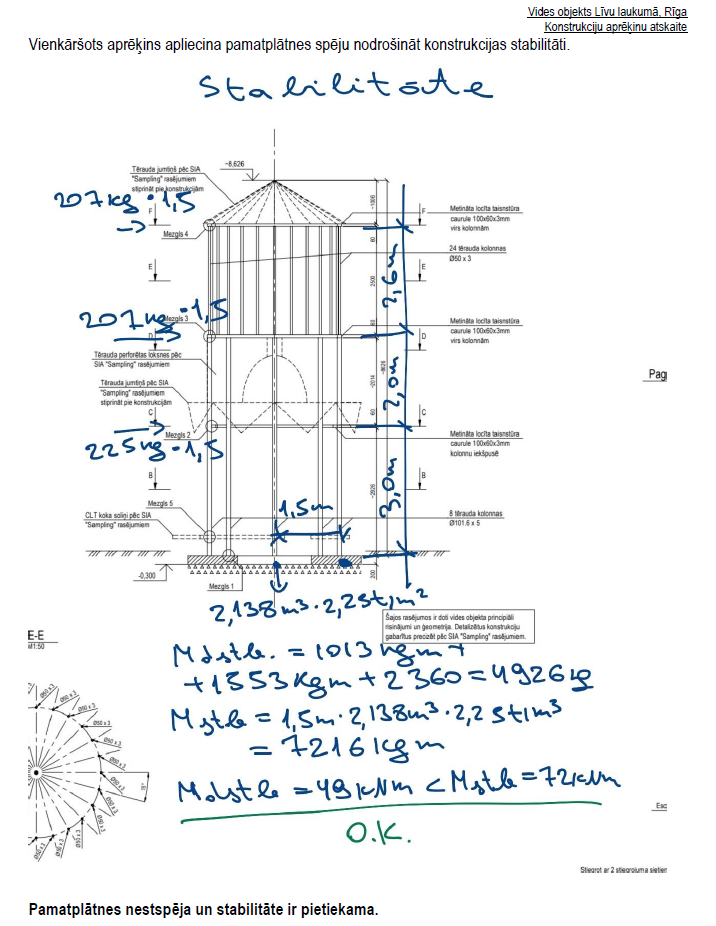 Vides objekts Līvu laukumā, Rīga
Konstrukciju aprēķinu atskaite
Vienkāršots aprēķins apliecina pamatplātnes spēju nodrošināt konstrukcijas stabilitāti.
Stabilitāte
~8,626
Tērauda jumtiņš pēc SIA
"Sampling" rasējumiem
stiprināt pie konstrukcijām
207kg · 1,5
F
F
Mezgls 4
~1006
Metināta locīta taisnstūra
caurule 100x60x3mm
virs kolonnām
60
24 tērauda kolonnas
Ø50 x 3
E
E
2500
2,6m
207kg · 1,5
Mezgls 3
60
Metināta locīta taisnstūra
caurule 100x60x3mm
virs kolonnām
D
D
Tērauda perforētas loksnes pēc
SIA "Sampling" rasējumiem
~2014
~8626
2,0m
Pag
Tērauda jumtiņš pēc SIA
"Sampling" rasējumiem
stiprināt pie konstrukcijām
C
C
60
Mezgls 2
225kg · 1,5
Metināta locīta taisnstūra
caurule 100x60x3mm
kolonnu iekšpusē
B
B
~2926
3,0m
Mezgls 5
1,5m
CLT koka soliņi pēc SIA
"Sampling" rasējumiem
8 tērauda kolonnas
Ø101.6 x 5
-0,300
200
Mezgls 1
2,138m³ · 2,25t/m²
Šajos rasējumos ir doti vides objekta principiāli
risinājumi un ģeometrija. Detalizētus konstrukciju
gabarītus precizēt pēc SIA "Sampling" rasējumiem.
E-E
M1:50
Mdstb. = 1013 kgm +
+ 1553 kgm + 2360 = 4926 kg
Mstb = 1,5m · 2,138m³ · 2,25t/m³
= 7216 kgm
Ø50 x 3
Ø50 x 3
Ø50 x 3
Ø50 x 3
Ø50 x 3
Ø50 x 3
Ø50 x 3
Ø50 x 3
Ø50 x 3
Ø50 x 3
Ø50 x 3
15°
Mdstb = 49kNm < Mstb = 72kNm
O.K.
Esc
Stiegrot ar 2 stiegrojuma sietien
Pamatplātnes nestspēja un stabilitāte ir pietiekama.